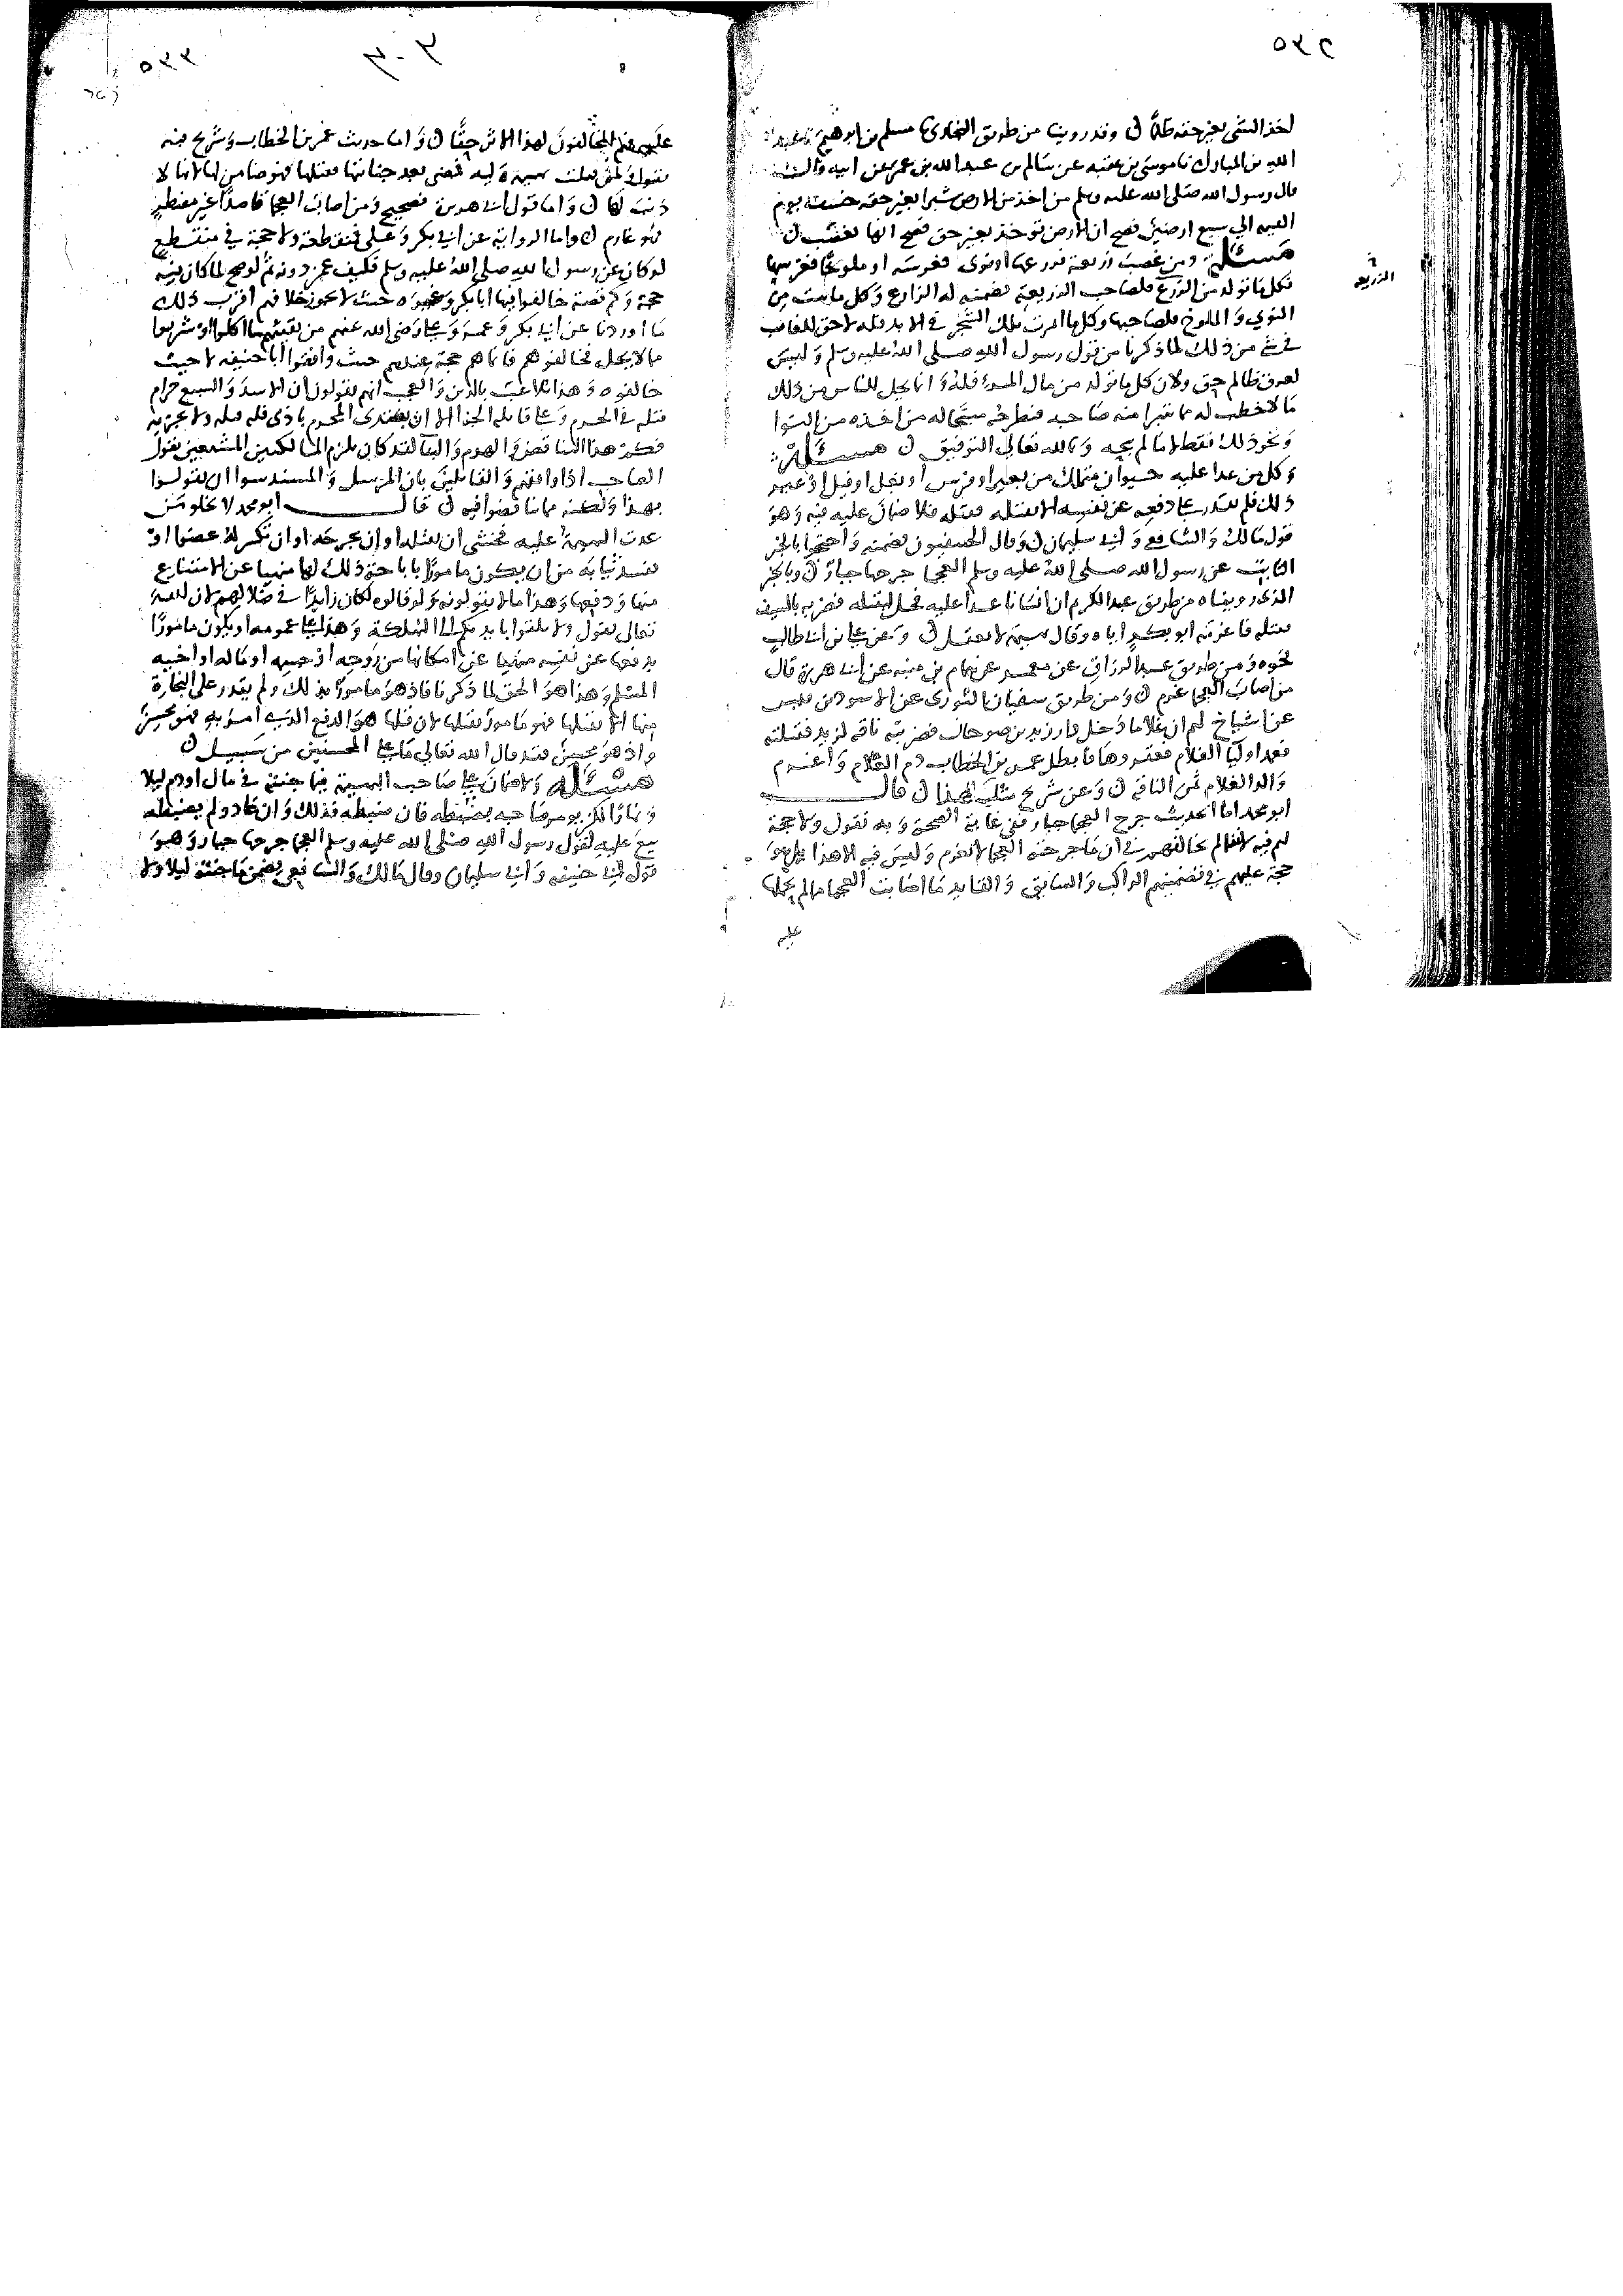 ٥٣٢
لاخذ الشي بغير حقه ظلما ن وقد روينا من طريق البخاري نا مسلم بن ابرهيم نا عبد
الله بن المبارك نا موسى بن عقبه عن سالم بن عبد الله بن عمر عن ابيه قال
قال رسول الله صلى الله عليه وسلم من اخذ من الارض شبرا بغير حقه خسف به يوم
القيمه الي سبع ارضين فصح ان الارض توخذ بغير حق فصح انها تغصب ن
مسئلة ومن غصب زريعة فزرعها او نوى فغرسه او ملوخا فغرسها
فكل ما تولد من الزرع فلصاحب الزريعة يضمنه له الزارع وكل ما نبت من
الزريعه
النوي والملوخ فلصاحبها وكل ما اثمرت تلك الشجر في الابد فله لا حق للغاصب
في شي من ذلك لما ذكرنا من قول رسول الله صلى الله عليه وسلم وليس
لعرق ظالم حق ولان كل ما تولد من مال المرء فله وانما يحل للناس من ذلك
ما لا خطب له مما تبرا منه صاحبه فطرحه مبيحا له من اخذه من النوا
ونحو ذلك فقط لا ما لم يبحه وبالله تعالي التوفيق ن مسئلة
وكل من عدا عليه حيوان متملك من بعير او فرس او بغل او فيل او غير
ذلك فلم يقدر علي دفعه عن نفسه الا بقتله فقتله فلا ضمان عليه فيه وهو
قول مالك والشافعي وابي سليمان ن وقال الحنفيون يضمنه واحتجوا بالخبر
الثابت عن رسول الله صلى الله عليه وسلم العجما جرحها جبار ن وبالخبر
الذي رويناه من طريق عبد الكريم ان انسانا عدا عليه فحل ليقتله فضربه بالسيف
فقتله فاغرمه ابو بكر اياه وقال بهيمة لا تعقل ن وعن علي بن ابي طالب
نحوه ومن طريق عبد الرزاق عن معمر عن همام بن منبه عن ابي هريرة قال
من اصاب العجما غرم ن ومن طريق سفيان الثوري عن الاسود بن قيس
عن اشياخ لهم ان غلاما دخل دار زيد بن صوحان فضربته ناقه لزيد فقتلته
فعمد اوليا الغلام فعقروها فابطل عمر بن الخطاب دم الغلام واغرم
والد الغلام ثمن الناقه ن وعن شريح مثل هذا ن قال
ابو محمد اما الحديث جرح العجما جبار ففي غاية الصحة وبه نقول ولا حجة
لهم فيه لاننا لم نخالفهم في ان ما جرحته العجما لا يغرم وليس فيه الا هذا بل هو
حجة عليهم في تضمينهم الراكب والسائق والقايد ما اصابت العجما مالم يحملها
عليه
٥٣٣
٣٠٣
عليه فهم المخالفون لهذا الاثر حقا ن واما حديث عمر بن الخطاب وشريح فبه
نقول لمن قتلت بهيمة وليه فمضى بعد جنايتها فقتلها فهو ضامن لها لانها لا
ذنب لها ن واما قول ابي هريرة فصحيح ومن اصاب العجما قاصدا غير مضطر
فهو غارم ن واما الرواية عن ابي بكر وعلي فمنقطعة ولا حجة في منقطع
لو كان عن رسول الله صلى الله عليه وسلم فكيف عمن دونه ثم لو صح لما كان فيه
حجة وكم قصة خالفوا فيها ابا بكر وغيره حيث لا يجوز خلافهم اقرب ذلك
ما اوردنا عن ابي بكر وعمر وعلي رضي الله عنهم من تقيئهم ما اكلوا او شربوا
مما لا يحل فخالفوهم فانما هم حجة عندهم حيث وافقوا ابا حنيفه لا حيث
خالفوه وهذا تلاعب بالدين والعجب انهم يقولون ان الاسد والسبع حرام
قتله في الحرم وعلي قاتله الجزا الا ان يبتدي المحرم باذى فله قتله ولا يجزيه
فكم هذا التناقض والهدم والبنا لقد كان يلزم المالكيين المشنعين بقول
الصاحب اذا وافقهم والقايلين بان المرسل والمسند سوا ان يقولوا
بهذا ولكنه مما تناقضوا فيه ن قال ابو محمد لا يخلو من
عدت البهيمة عليه فخشي ان تقتله او ان يجرحه او ان تكسر له عضوا او
تفسد ثيابه من ان يكون مامورا باباحة ذلك لها منهيا عن الامتناع
منها ودفعها وهذا ما لا يقولونه ولو قالوه لكان زايدا في ضلالهم لان الله
تعالى يقول ولا تلقوا بايديكم الى التهلكة وهذا علي عمومه او يكون مامورا
بدفعها عن نفسه منهيا عن امكانها من روحه او جسمه او ماله او اخيه
المسلم وهذا هو الحق لما ذكرنا فاذ هو مامور بذلك ولم يقدر على النجاة
منها الا بقتلها فهو مامور بقتلها لان قتلها هو الدفع الذي امر به فهو محسن
واذ هو محسن فقد قال الله تعالي ما على المحسنين من سبيل ن
مسئله ولا ضمان علي صاحب البهيمة فيما جنته في مال او دم ليلا
ونهارا لكن يومر صاحبه بضبطه فان ضبطه فذلك وان عاد ولم يضبطه
بيع عليه لقول رسول الله صلى الله عليه وسلم العجما جرحها جبار وهو
قول ابي حنيفه وابي سليمان وقال مالك والشافعي يضمن ما جنته ليلا ولا